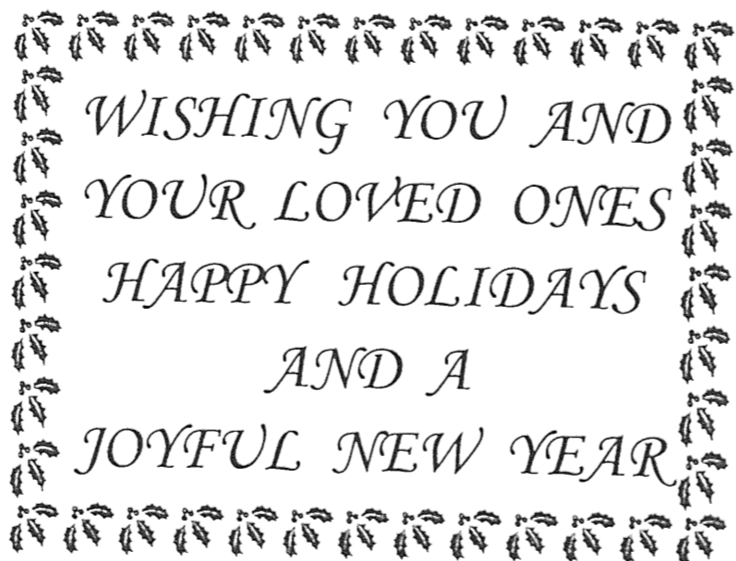 WISHING YOU AND
YOUR LOVED ONES
HAPPY HOLIDAYS
AND A
JOYFUL NEW YEAR